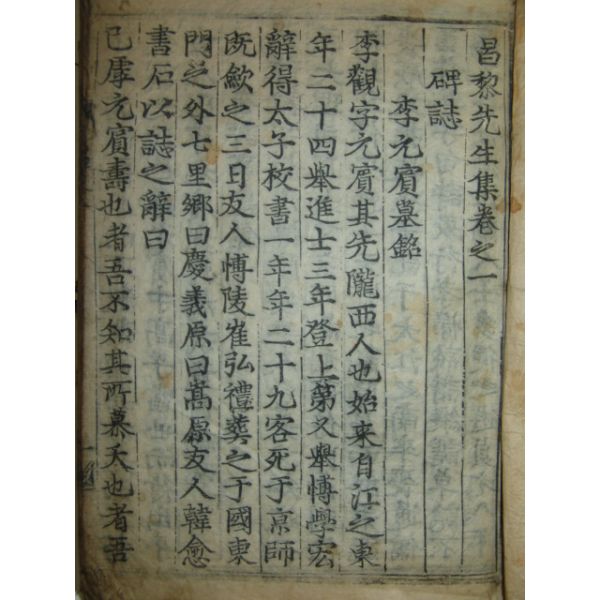 昌黎先生集卷之一
碑誌
李元賓墓銘
李觀字元賓其先隴西人也始来自江之東
年二十四舉進士三年登上第又舉愽學宏
辭得太子校書一年年二十九客死于京師
既歛之三日友人愽陵崔弘禮葬之于國東
門之外七里郷曰慶義原曰嵩原友人韓愈
書石以誌之辭曰
已虖元賓壽也者吾不知其所慕夭也者吾